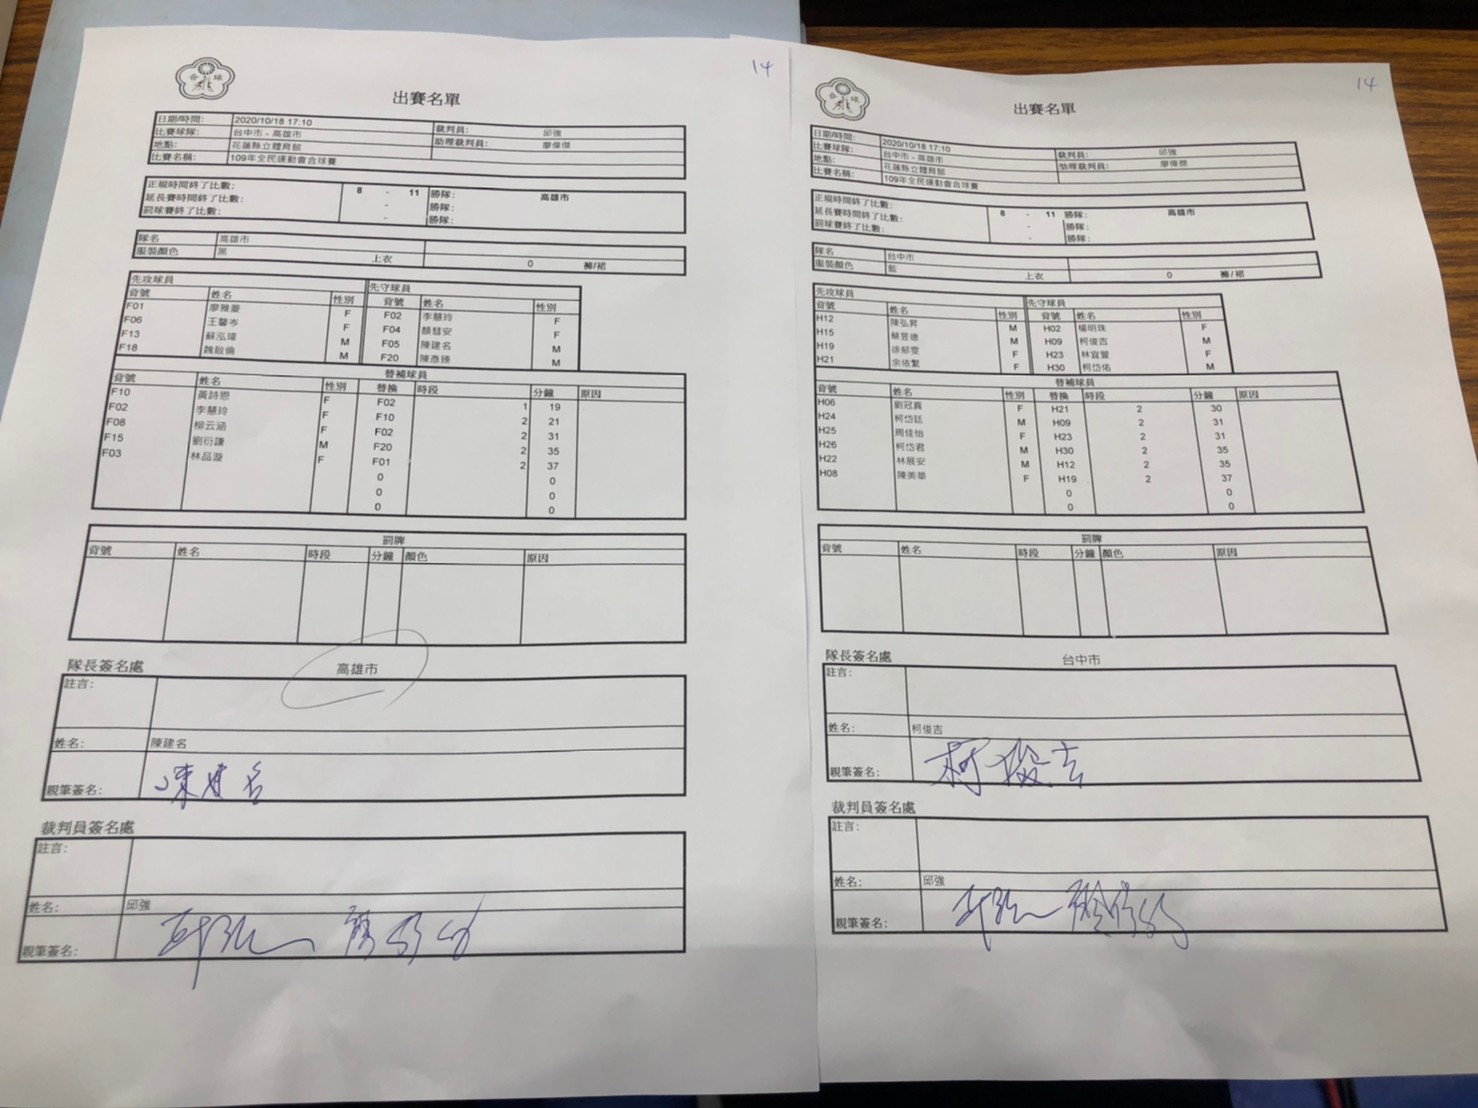 14
合球
出賽名單
日期/時間: 2020/10/18 17:10 裁判員: 邱強
比賽球隊: 台中市 - 高雄市 助理裁判員: 廖偉傑
地點: 花蓮縣立體育館
比賽名稱: 109年全民運動會合球賽
正規時間終了比數: 8 - 11 勝隊: 高雄市
延長賽時間終了比數: - 勝隊:
罰球賽終了比數: - 勝隊:
隊名 高雄市
服裝顏色 黑 上衣 0 褲/裙
先攻球員 先守球員
背號 姓名 性別 背號 姓名 性別
F01 廖雅菱 F F02 李慧玲 F
F06 王馨岑 F F04 顏彗安 F
F13 蘇泓瑋 M F05 陳建名 M
F18 魏敏倫 M F20 陳彥臻 M
替補球員
背號 姓名 性別 替換 時段 分鐘 原因
F10 黃詩恩 F F02 1 19
F02 李慧玲 F F10 2 21
F08 楊云涵 F F02 2 31
F15 劉衍謙 M F20 2 35
F03 林品漩 F F01 2 37
0 0
0 0
0 0
罰牌
背號 姓名 時段 分鐘 顏色 原因
隊長簽名處 高雄市
註言:
姓名: 陳建名
親筆簽名: 陳建名
裁判員簽名處
註言:
姓名: 邱強
親筆簽名: 邱強
14
合球
出賽名單
日期/時間: 2020/10/18 17:10 裁判員: 邱強
比賽球隊: 台中市 - 高雄市 助理裁判員: 廖偉傑
地點: 花蓮縣立體育館
比賽名稱: 109年全民運動會合球賽
正規時間終了比數: 8 - 11 勝隊: 高雄市
延長賽時間終了比數: - 勝隊:
罰球賽終了比數: - 勝隊:
隊名 台中市
服裝顏色 藍 上衣 0 褲/裙
先攻球員 先守球員
背號 姓名 性別 背號 姓名 性別
H12 陳弘昇 M H02 楊明珠 F
H15 蔡昱德 M H09 柯俊吉 M
H19 徐郁雯 F H23 林宜萱 F
H21 余依繁 F H30 柯岱佑 M
替補球員
背號 姓名 性別 替換 時段 分鐘 原因
H06 劉冠真 F H21 2 30
H24 柯岱廷 M H09 2 31
H25 周佳怡 F H23 2 31
H26 柯岱君 M H30 2 35
H22 林展安 M H12 2 35
H08 陳美華 F H19 2 37
0 0
0 0
罰牌
背號 姓名 時段 分鐘 顏色 原因
隊長簽名處 台中市
註言:
姓名: 柯俊吉
親筆簽名: 柯俊吉
裁判員簽名處
註言:
姓名: 邱強
親筆簽名: 邱強